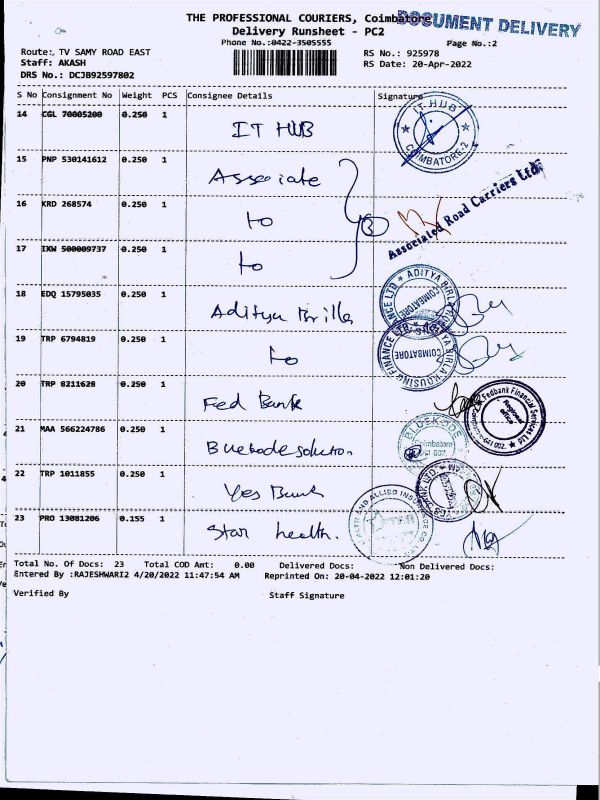 THE PROFESSIONAL COURIERS, Coimbatore
DOCUMENT DELIVERY
Delivery Runsheet - PC2
Phone No.:0422-3505555
Page No.:2
Route:, TV SAMY ROAD EAST
RS No.: 925978
Staff: AKASH
RS Date: 20-Apr-2022
DRS No.: DCJB92597802
S No Consignment No Weight PCS Consignee Details Signature
14 CGL 70005200 0.250 1 IT HUB
IT HUB COIMBATORE-2
15 PNP 530141612 0.250 1 Associate
16 KRD 268574 0.250 1 to
Associated Road Carriers Ltd.
17 IXW 500009737 0.250 1 to
3
18 EDQ 15795035 0.250 1 Aditya Brilla
ADITYA BIRLA COIMBATORE
19 TRP 6794819 0.250 1 to
ADITYA BIRLA HOUSING FINANCE LTD. COIMBATORE
20 TRP 8211628 0.250 1 Fed Bank
Fedbank Financial Services Ltd Regional Office
21 MAA 566224786 0.250 1 Bluekode solution
BLUEKODE Coimbatore 641 002.
22 TRP 1011855 0.250 1 Yes Bank
YES BANK LTD.
23 PRO 13081206 0.155 1 Star health.
HEALTH AND ALLIED INSURANCE CO. STAR
Total No. Of Docs: 23 Total COD Amt: 0.00 Delivered Docs: Non Delivered Docs:
Entered By :RAJESHWARI2 4/20/2022 11:47:54 AM Reprinted On: 20-04-2022 12:01:20
Verified By Staff Signature